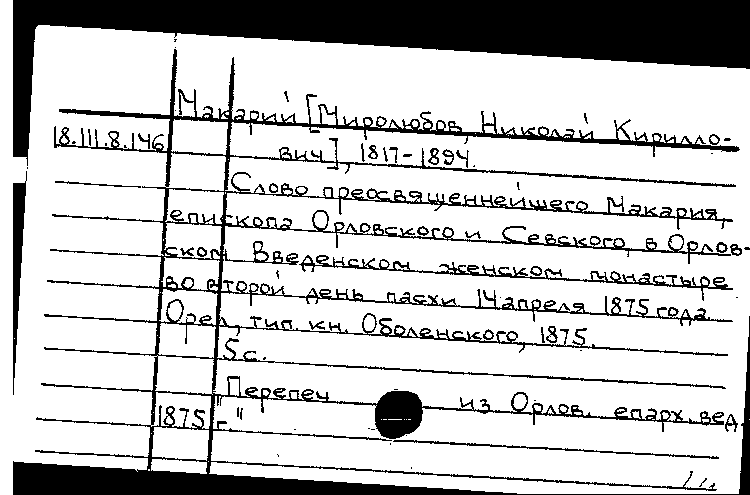 Макарий [Миролюбов, Николай Кирилло-
18.III.8.146 вич], 1817-1894.
Слово преосвященнейшего Макария,
епископа Орловского и Севского, в Орлов-
ском Введенском женском монастыре
во второй день пасхи 14 апреля 1875 года.
Орел, тип. кн. Оболенского, 1875.
5 с.
"Перепеч из Орлов. епарх. вед.
1875 г."